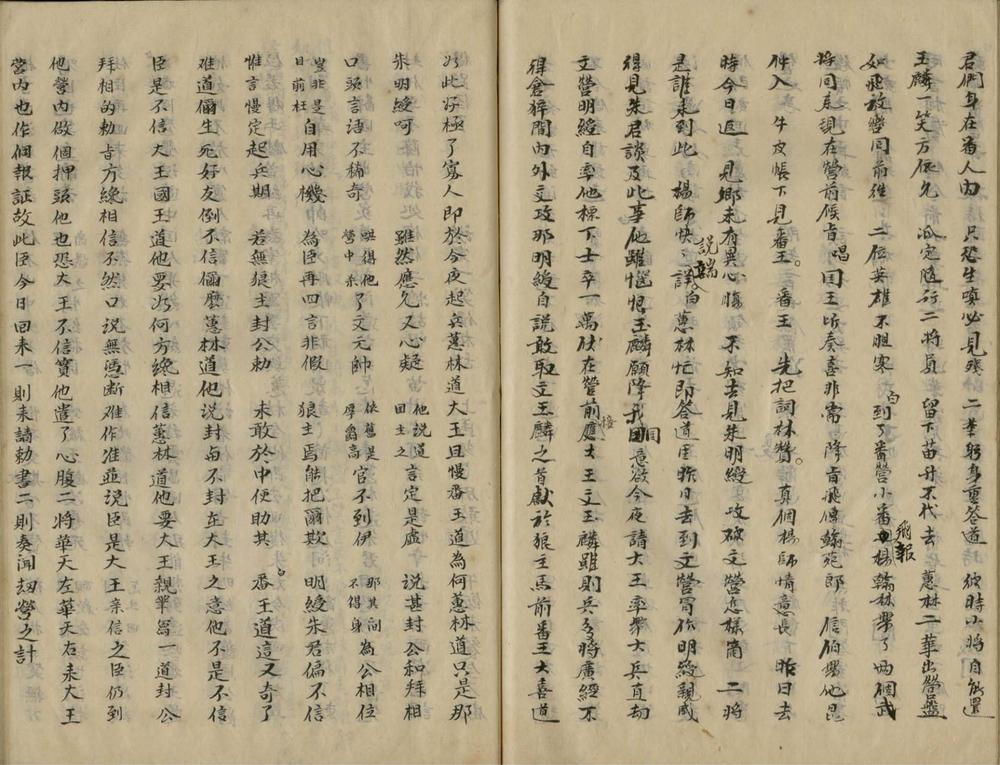 君們身在番人內 只恐生嗔必見殘 二華躬身重答道 彼時小將自能還
玉麟一笑方依允 派定隨行二將員 留下苗丹不代去 蕙林二華出營盤
如飛放轡同前往 二位英雄不胆寒 到了番營小番飛報楊翰林帶了兩個武
將同來現在營前候旨 唱 国王听奏喜非常 降旨飛傳翰苑郎 信伯場他昆
仲入 牛皮帳下見番王。番王 先把詞林贊。真個楊師情意長 昨日去
時今日返 見鄉未有異心腸 不知去見朱明綬 攻破文營怎樣商 二將
是誰走到此 楊師快說端詳 白 蕙林忙即答道臣昨日去到文營冒為明綬親戚
得見朱君談及此事他雖惱恨玉麟願降我囯意欲今夜請大王率眾大兵直劫
文營明綬自率他標下士卒一萬伏在營前接應大王文玉麟雖則兵多將廣經不
得倉猝間內外交攻那明綬自說敢取文玉麟之首献於狼主馬前番王大喜道
如此好極了寡人即於今夜起兵蕙林道大王且慢番王道為何蕙林道只是那
朱明綬呵 雖然應允又心疑 他說道回主之言定是虛 說甚封公和拜相
口頭言語不稀奇 營中來了文元帥 依舊是厚爵高官不到伊 那其间不得身為公相位
豈非是日前枉自用心機 為臣再四言非假 狼主焉能把爾欺 明綬朱君偏不信
惟言慢定起兵期 若無狼主封公勅 未敢於中便助其 白 番王道這又奇了
难道儞生死好友倒不信儞麼蕙林道他說封与不封在大王之意他不是不信
臣是不信大王國王道他要如何方纔相信蕙林道他要大王親筆寫一道封公
拜相的勅旨方纔相信不然口說無憑断难作准並說臣是大王亲信之臣仍到
他營內做個押頭他也恐大王不信實他遣了心腹二將華天左華天右來大王
營內也作個報証故此臣今日回來一則来請勅書二則奏闻刼營之計